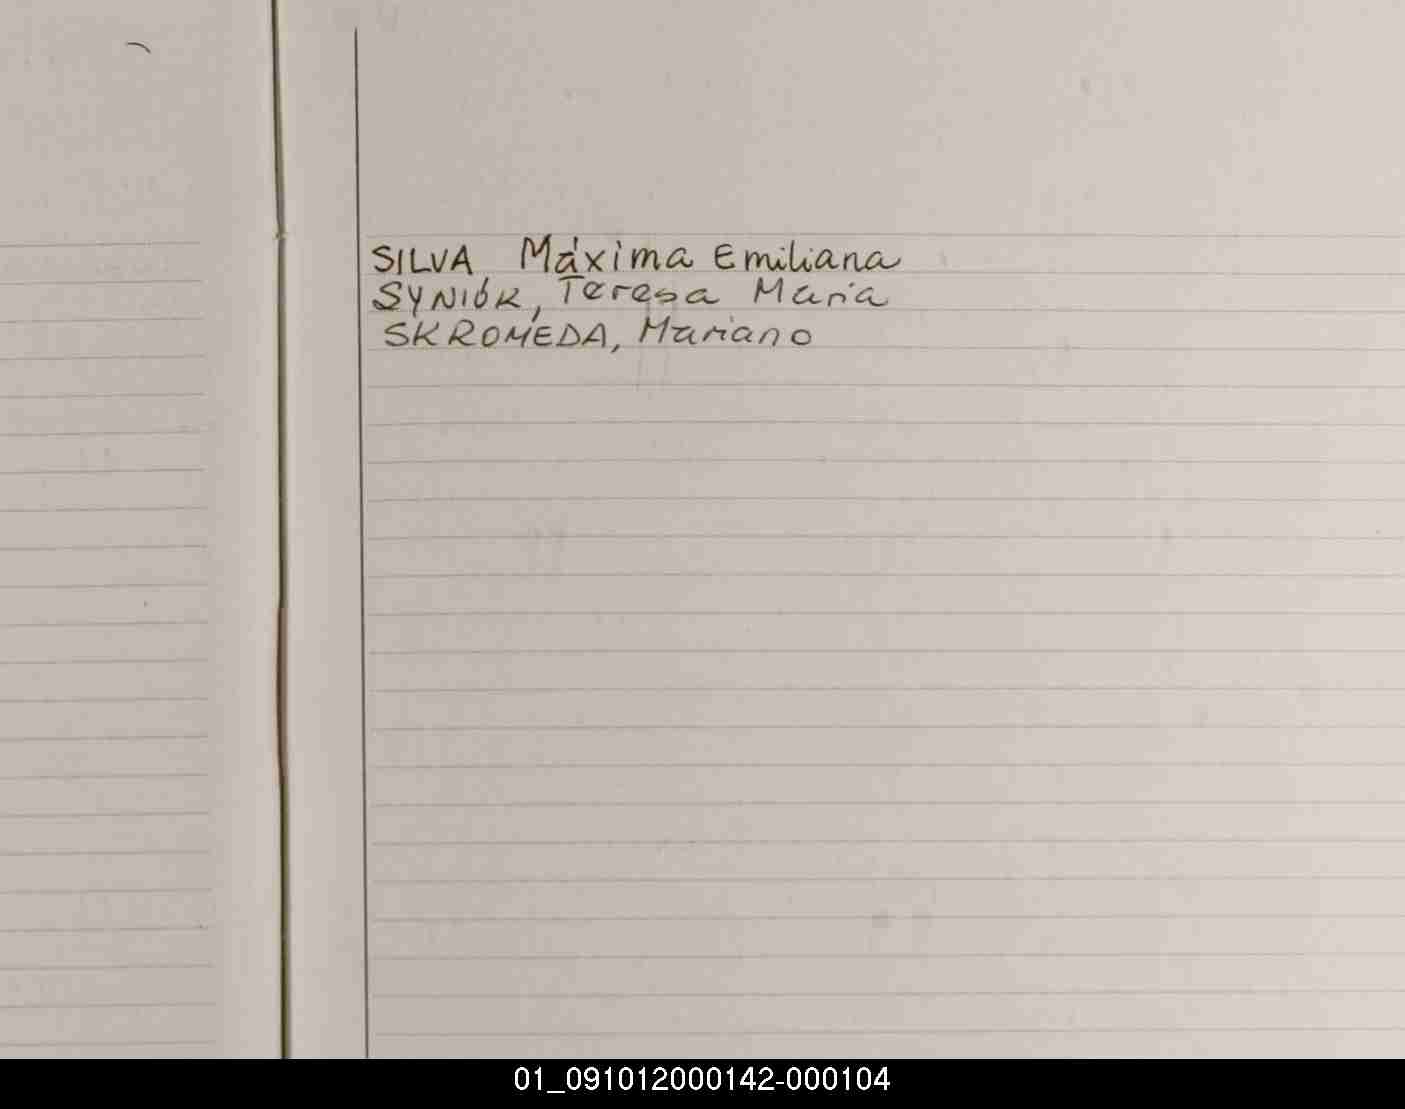 SILVA, Máxima Emiliana
SYNIÓK, Teresa Maria
SKROMEDA, Mariano
01_091012000142-000104